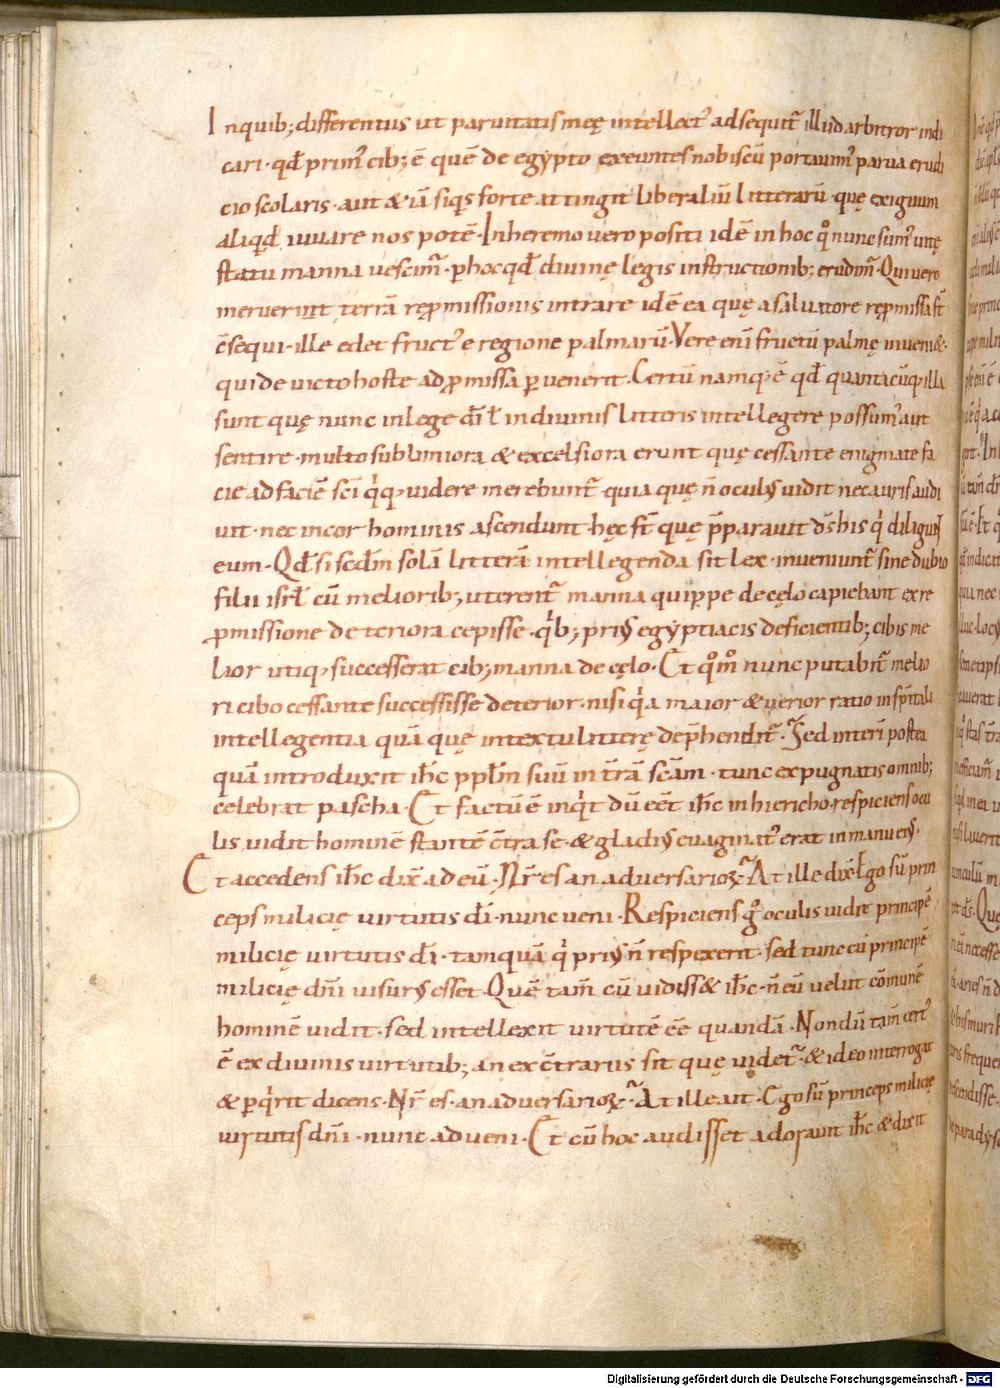 In quib; differentus ut paruitatis meę intellect᾿ adsequit̃ illud arbitror indi
cari · qd̄ prim᾿ cib; ē quē de egẏpto exeuntes nobiscū portauim᾿ parua erudi
cio scolaris · aut & iā siqis forte attingit liberaliū litterarū · quę exiguum
aliqid̄ iuuare nos potē · In heremo uero positi idē in hoc qo nunc sum᾿ uitę
statu manna uescim̃ · p hoc qd̄ diuinę legis instructionib; erudim̃ · Qui uero
meruerint terrā rępmissionis intrare idē ea quę a saluatore rępmissa st̄
c̄sequi · ille edet fruct᾿ e regione palmarū · Vere eni fructū palmę inueni& ·
qui de uicto hoste ad pmissa puenerit · Certū namq; ē qd̄ quantacūq; illa
sunt quę nunc in lege dī ł in diuinis litteris intellegere possum᾿ aut
sentire · multo sublimiora & excelsiora erunt quę cessante enigmate fa
cie ad faciē sc̄i qiq; uidere merebunt̃ · quia quę n̄ oculus uidit nec auris audi
uit · nec in cor hominis ascendunt hęc st̄ quę p̄parauit ds̄ his qi diligunt
eum · Qd̄ si scd̄m solā litterā intellegenda sit lex · inueniunt̃ sine dubio
filii isrł cū meliorib; uterent̃ manna quippe de cęlo capiebant ex re
pmissione deteriora cepisse · qib; prius egẏptiacis deficientib; cibis me
lior utiq; successerat cib; manna de cęlo · Et qomo nunc putabit̃ melio
ri cibo cessante successisse deterior · nisi qia maior & uerior ratio in sp̄itali
intellegentia quā quę in textu litterę dep̄hendit̃ · Sed interī postea
quā introduxit ih̄c pplm̄ suū in t̃rā sc̄am · tunc expugnatis omnib;
celebrat pascha · Et factū ē inqit dū eēt ih̄c in hiericho · respiciens ocu
lis uidit hominē stantē c̄tra se · & gladius euaginat᾿ erat in manu ei᾿ ·
Et accedens ih̄c dix̄ ad eū · Nr̄ es an aduersarioꝝ · At ille dix̄ · Ego sū prin
ceps milicię uirtutis dī · nunc ueni · Respiciens go oculis uidit principē
milicię uirtutis dī · tamquā qi prius n̄ respexerit · sed tunc cū principē
milicię dn̄i uisurus esset · Quē tam̄ cū uidiss& ih̄c · n̄ eū uelut cōmunē
hominē uidit · sed intellexit uirtutē eē quandā · Nondū tam̄ cert᾿
ē ex diuinis uirtutib; an ex c̄trariis sit quę uidet̃ · & ideo interrogat
& pqirit dicens · Nr̄ es · an aduersarioꝝ · At ille ait · Ego sū princeps milicię
uirtutis dn̄i · nunc adueni · Et cū hoc audisset adorauit ih̄c & dixit
Digitalisierung gefördert durch die Deutsche Forschungsgemeinschaft - DFG